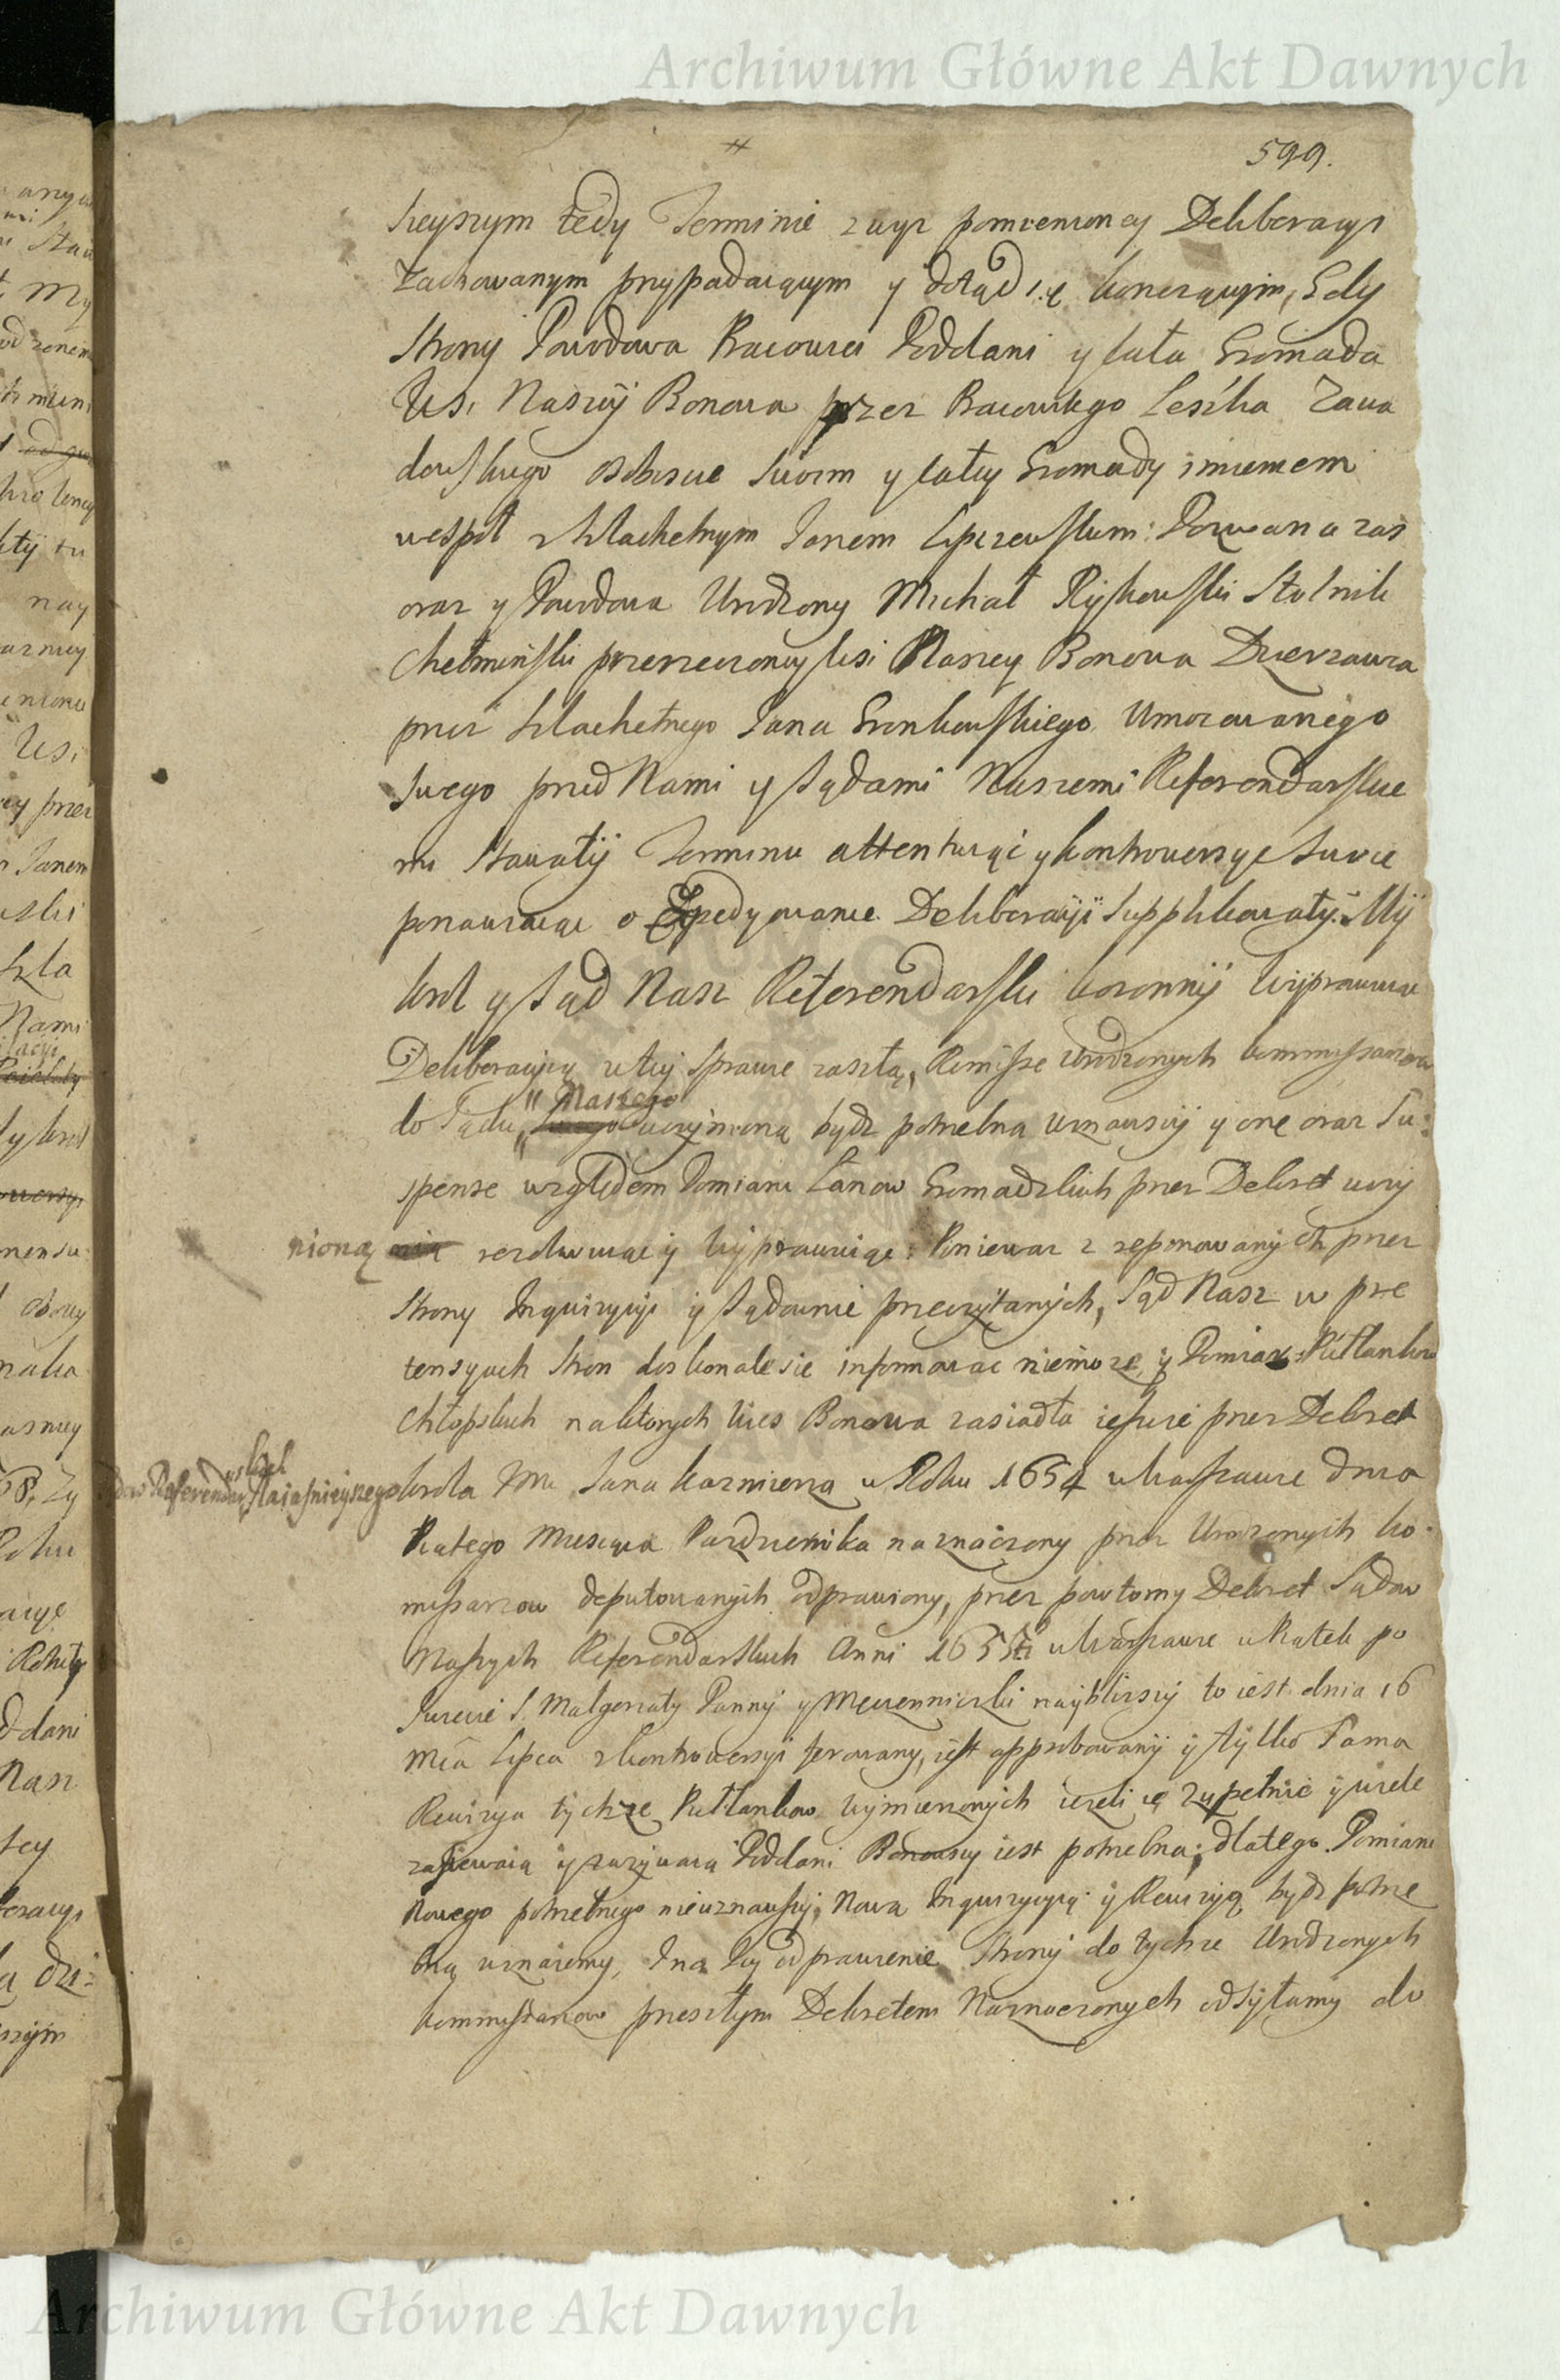 Archiwum Główne Akt Dawnych
599.
szym tedy Terminie z wyż pomienioney Deliberacyi
zachowanym przypadaiącym y dotąd się konczącym, Gdy
Strony Powodowa Pracowici Poddani y cała Gromada
Wsi Naszey Bonowa przez Pracowitego Leszka Zawa
dowskiego osobiscie swoim y całey Gromady imieniem
wespoł z Szlachetnym Janem Lipczewskim: Pozwana zas
oraz y Powodowa Urodzony Michał Ryszkowski Stolnik
Chełminski przerzeczoney Wsi Naszey Bonowa Dzierzawca
przez Szlachetnego Jana Gronkowskiego Umocowanego
swego przed Nami y Sądami Naszemi Referendarskie
mi stawały Terminu attentuiąc y kontrowersye swoie
ponawiaiąc o Expedyowanie Deliberacyi Supplikowały. My
Krol y Sąd Nasz Referendarski koronny Wyprawuiąc
Deliberacyią w tey sprawie zaszłą, Remissę Urodzonych kommissarzow
do Sądu Naszego uczynioną bydz potrzebną uznawszy y onę oraz Su:
spensę względem Pomiaru Łanow Gromadzkich przez Dekret uczy
nioną rezolwuiąc y Wyprawuiąc: Poniewaz z reponowanych przez
Strony Inquizycyi y Sądownie przeczytanych, Sąd Nasz w pre
tensyach stron doskonale się informować niemoze, y Pomiar Półłankow
Chłopskich na ktorych Wies Bonowa zasiadła ieszcze przez Dekret
Sądow Referendarskich Naiasnieyszego Krola Jmci Jana Kazmierza w Roku 1654 w Warszawie dnia
Piątego Miesiąca Pazdziernika naznaczony przez Urodzonych ko-
missarzow deputowanych odprawiony, przez powtorny Dekret Sądow
Naszych Referendarskich Anni 1655 w Warszawie w Piątek po
Swięcie S. Małgorzaty Panny y Męczenniczki nayblizszy to iest dnia 16
Mca Lipca z kontrowersyi ferowany, iest approbowany y tylko Sama
Rewizya tychze Pułłankow wymierzonych iezeli ie zupełnie y wiele
zasiewaią y zazywaią Poddani Bonowscy iest potrzebna; dlatego Pomiaru
Nowego potrzebnego nieuznawszy, Nową Inquizycyią y Rewizyą bydz potrze
bną uznaiemy, I na Jey odprawienie Strony do tychze Urodzonych
kommissarzow przeszłym Dekretem Naznaczonych odsyłamy do
Archiwum Główne Akt Dawnych